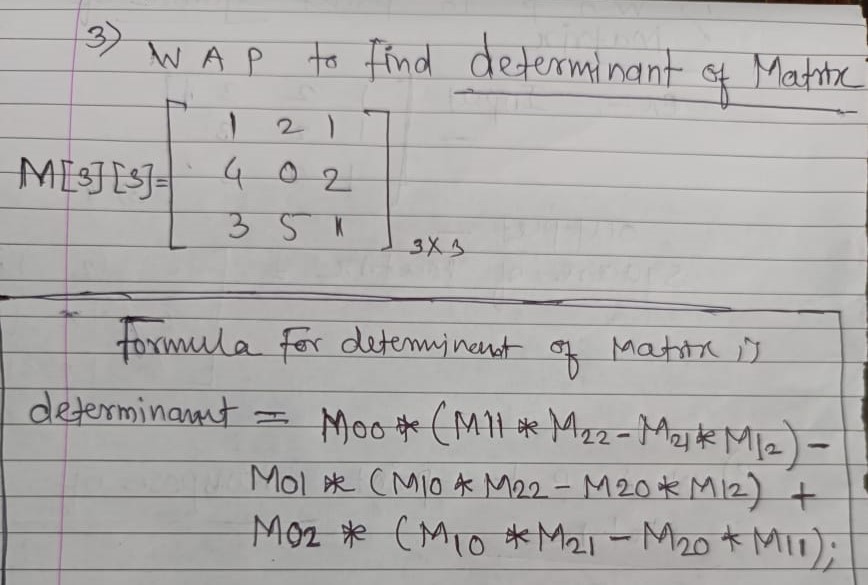 3)
W A P to find determinant of Matrix
1 2 1
M[3][3]= 4 0 2
3 5
3X3
formula for determinent of Matrix is
determinant = M00 * (M11 * M22 - M21 * M12) -
M01 * (M10 * M22 - M20 * M12) +
M02 * (M10 * M21 - M20 * M11);